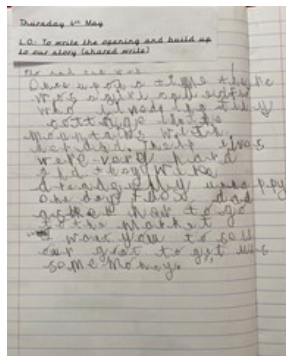 Thursday 4th May
L.O: To write the opening and build up
to our story (shared write)
Once upon a time there
was a girl called
who lived in a tiny
cottage in the
mountains with
her dad. Their lives
were very hard
and they were
One day dad
asked her to go
to the market
I want you to sell
our goat to get us
some money.